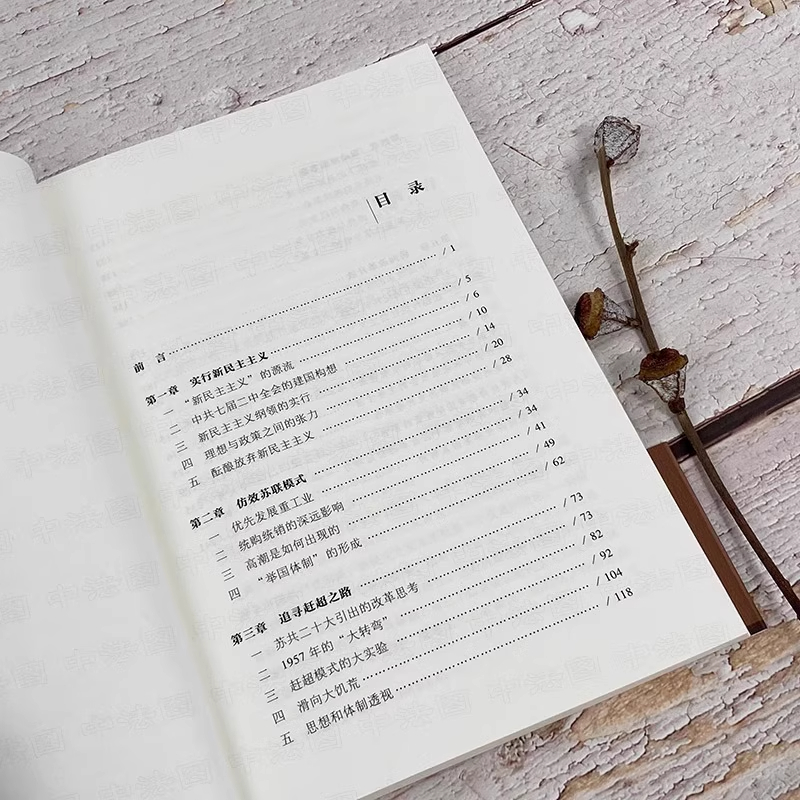 目 录
前 言 / 1
第一章 实行新民主主义 / 5
一 “新民主主义”的源流 / 6
二 中共七届二中全会的建国构想 / 10
三 新民主主义纲领的实行 / 14
四 理想与政策之间的张力 / 20
五 酝酿放弃新民主主义 / 28
第二章 仿效苏联模式 / 34
一 优先发展重工业 / 34
二 统购统销的深远影响 / 41
三 高潮是如何出现的 / 49
四 “举国体制”的形成 / 62
第三章 追寻赶超之路 / 73
一 苏共二十大引出的改革思考 / 73
二 1957 年的“大转弯” / 82
三 赶超模式的大实验 / 92
四 滑向大饥荒 / 104
五 思想和体制透视 / 118